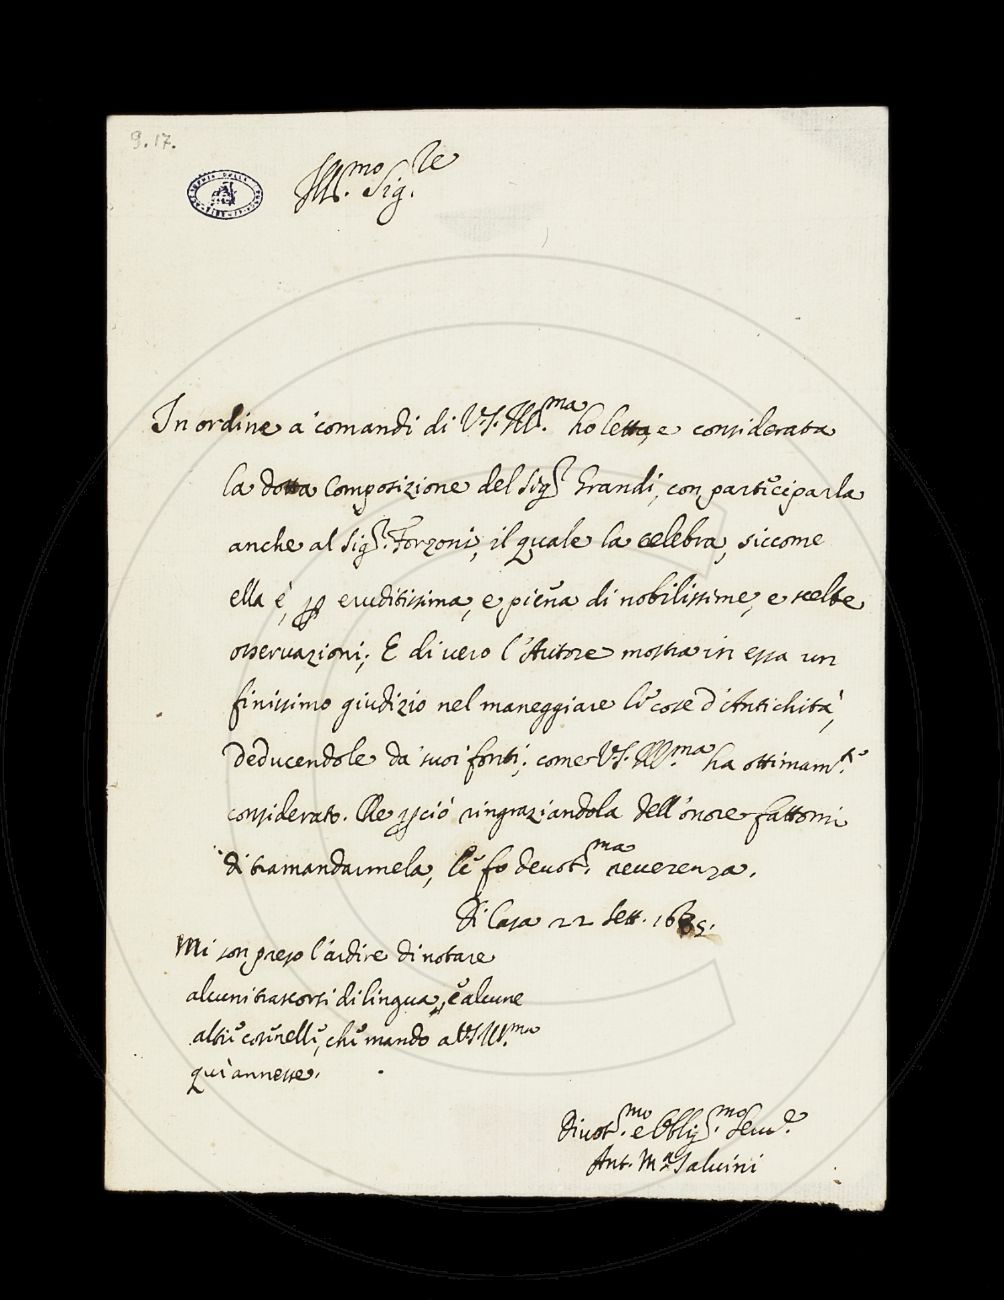 9.17.
Ill.mo Sig.re
In ordine a i comandi di V.S. Ill.ma ho letta, e considerata
la dotta Composizione del Sig.r Grandi, con participarla
anche al Sig.r Forzoni, il quale la celebra, siccome
ella è, p eruditissima, e piena di nobilissime, e scelte
osservazioni; E di vero l'Autore mostra in essa un
finissimo giudizio nel maneggiare le cose d'Antichità,
deducendole da suoi fonti; come V.S. Ill.ma ha ottimam.te
considerato. Che p ciò ringraziandola dell'onore fattomi
di tramandarmela, le fo devot.ma reverenza.
Di Casa 22 Sett. 1685.
Mi son preso l'ardire di notare
alcuni trascorsi di lingua, e alcune
altre coserelle, che mando a VS Ill.ma
qui annesse.
Divot.mo e Obblig.mo Serv.e
Ant. M.a Salvini